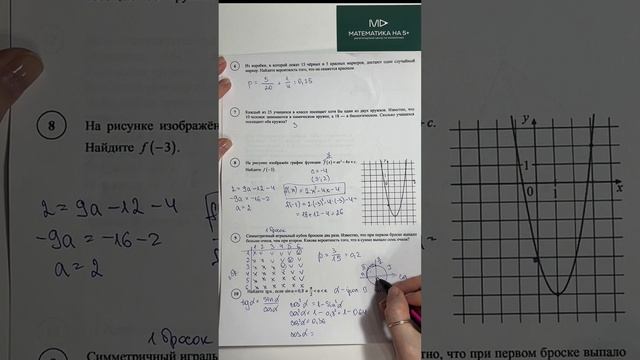 МАТЕМАТИКА НА 5+
6 Из коробки, в которой лежат 15 чёрных и 5 красных маркеров, достают один случайный
маркер. Найдите вероятность того, что он окажется красным.
P = 5/20 = 1/4 = 0,25
7 Каждый из 25 учащихся в классе посещает хотя бы один из двух кружков. Известно, что
10 человек занимаются в химическом кружке, а 18 — в биологическом. Сколько учащихся
посещают оба кружка?
3
8 На рисунке изображён график функции f(x) = ax² − 4x + c.
Найдите f(−3).
c = -4
(3; 2)
2 = 9a - 12 - 4
-9a = -16 - 2
a = 2
f(x) = 2x² - 4x - 4
f(-3) = 2·(-3)² - 4·(-3) - 4 =
= 18 + 12 - 4 = 26
9 Симметричный игральный кубик бросили два раза. Известно, что при первом броске выпало
больше очков, чем при втором. Какова вероятность того, что в сумме выпало семь очков?
1 бросок
1 2 3 4 5 6
P = 3/15 = 0,2
10 Найдите tg α, если sin α = 0,8 и π/2 < α < π.
tg α = sin α / cos α
cos²α = 1 - sin²α
cos²α = 1 - 0,8² = 1 - 0,64
cos²α = 0,36
cos α =
8 На рисунке изображён
Найдите f(−3).
2 = 9a - 12 - 4
-9a = -16 - 2
a = 2
1 бросок
Симметричный
c.
y
1
0
1
тно, что при первом броске выпало